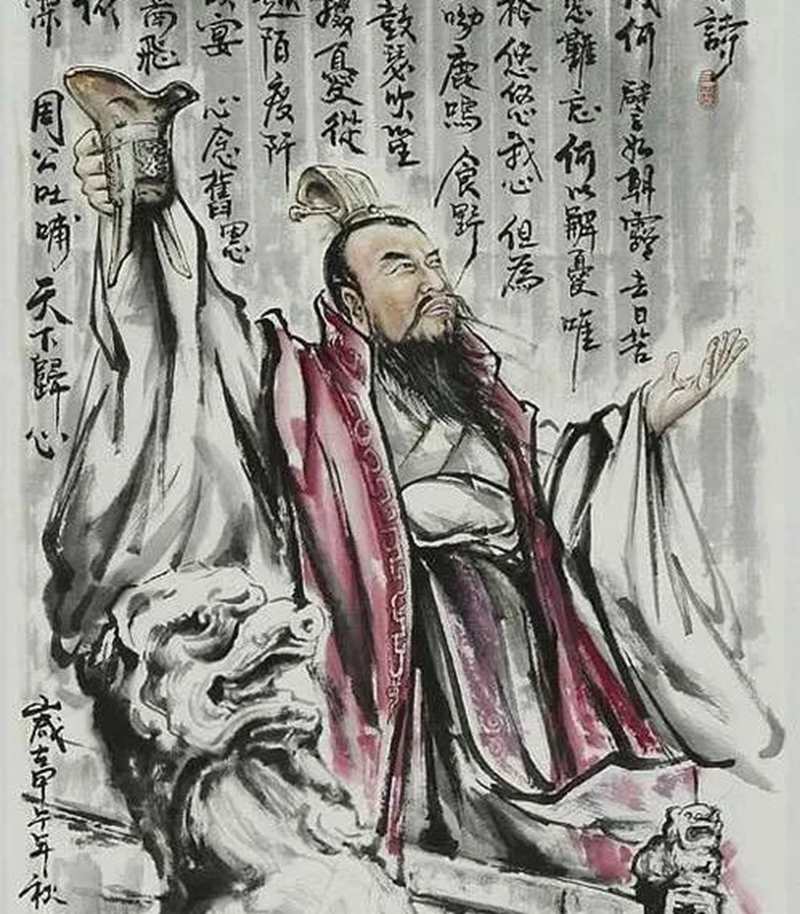 詩
何譬如朝露去日苦
思難忘何以解憂唯
衿悠悠我心但為
呦鹿鳴食野
鼓瑟吹笙
掇憂從
越陌度阡
宴心念舊恩
南飛
深
周公吐哺天下歸心
歲在甲午年秋